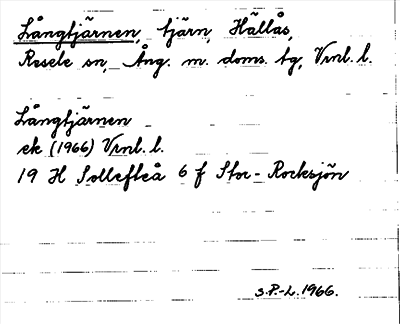 Långtjärnen, tjärn, Hällås,
Resele sn, Ång. m. doms. tg, Vrnl. l.
Långtjärnen
ek (1966) Vrnl. l.
19 H Sollefteå 6 f Stor-Rocksjön
S.P.-L. 1966.